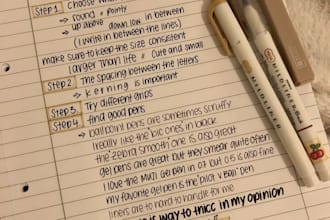 Step 1 choose
→ round & pointy
→ up above down low in between
(I write in between the lines)
make sure to keep the size consistent
larger than life & cute and small
Step 2 The spacing between the letters
→ kerning is important
Step 3 Try different grips
Step 4 find good pens
→ ball point pens are sometimes scruffy
I really like the bic ones in black
the zebra smooth one is also great
gel pens are great but they smear quite often
I love the MUJI Gel pen in 0.7 but 0.5 is also fine
my favorite gel pen is the pilot v ball pen
liners are to hard to handle for me
is way to thicc in my opinion
MILDLINER
MILDLINER